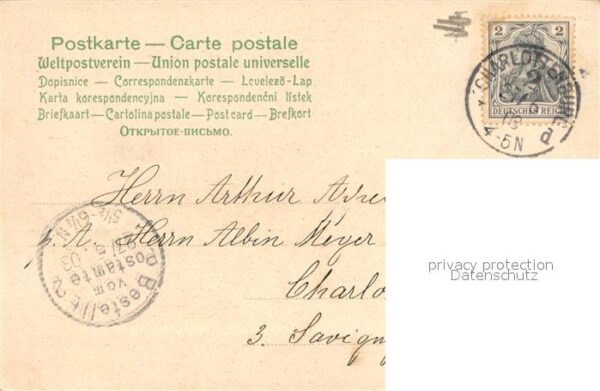 Postkarte — Carte postale
Weltpostverein — Union postale universelle
Dopisnice — Correspondenzkarte — Levelező-Lap
Karta korespondencyjna — Korespondenční lístek
Briefkaart — Cartolina postale — Post card — Brefkort
Открытое письмо.
2 2
DEUTSCHES REICH
CHARLOTTENBURG
4-5N
Herrn Arthur
p. A. Herrn Albin Meyer
Charlo
3. Savigny
Bestellt
vom
Postamte
5½-6½N
privacy protection
Datenschutz